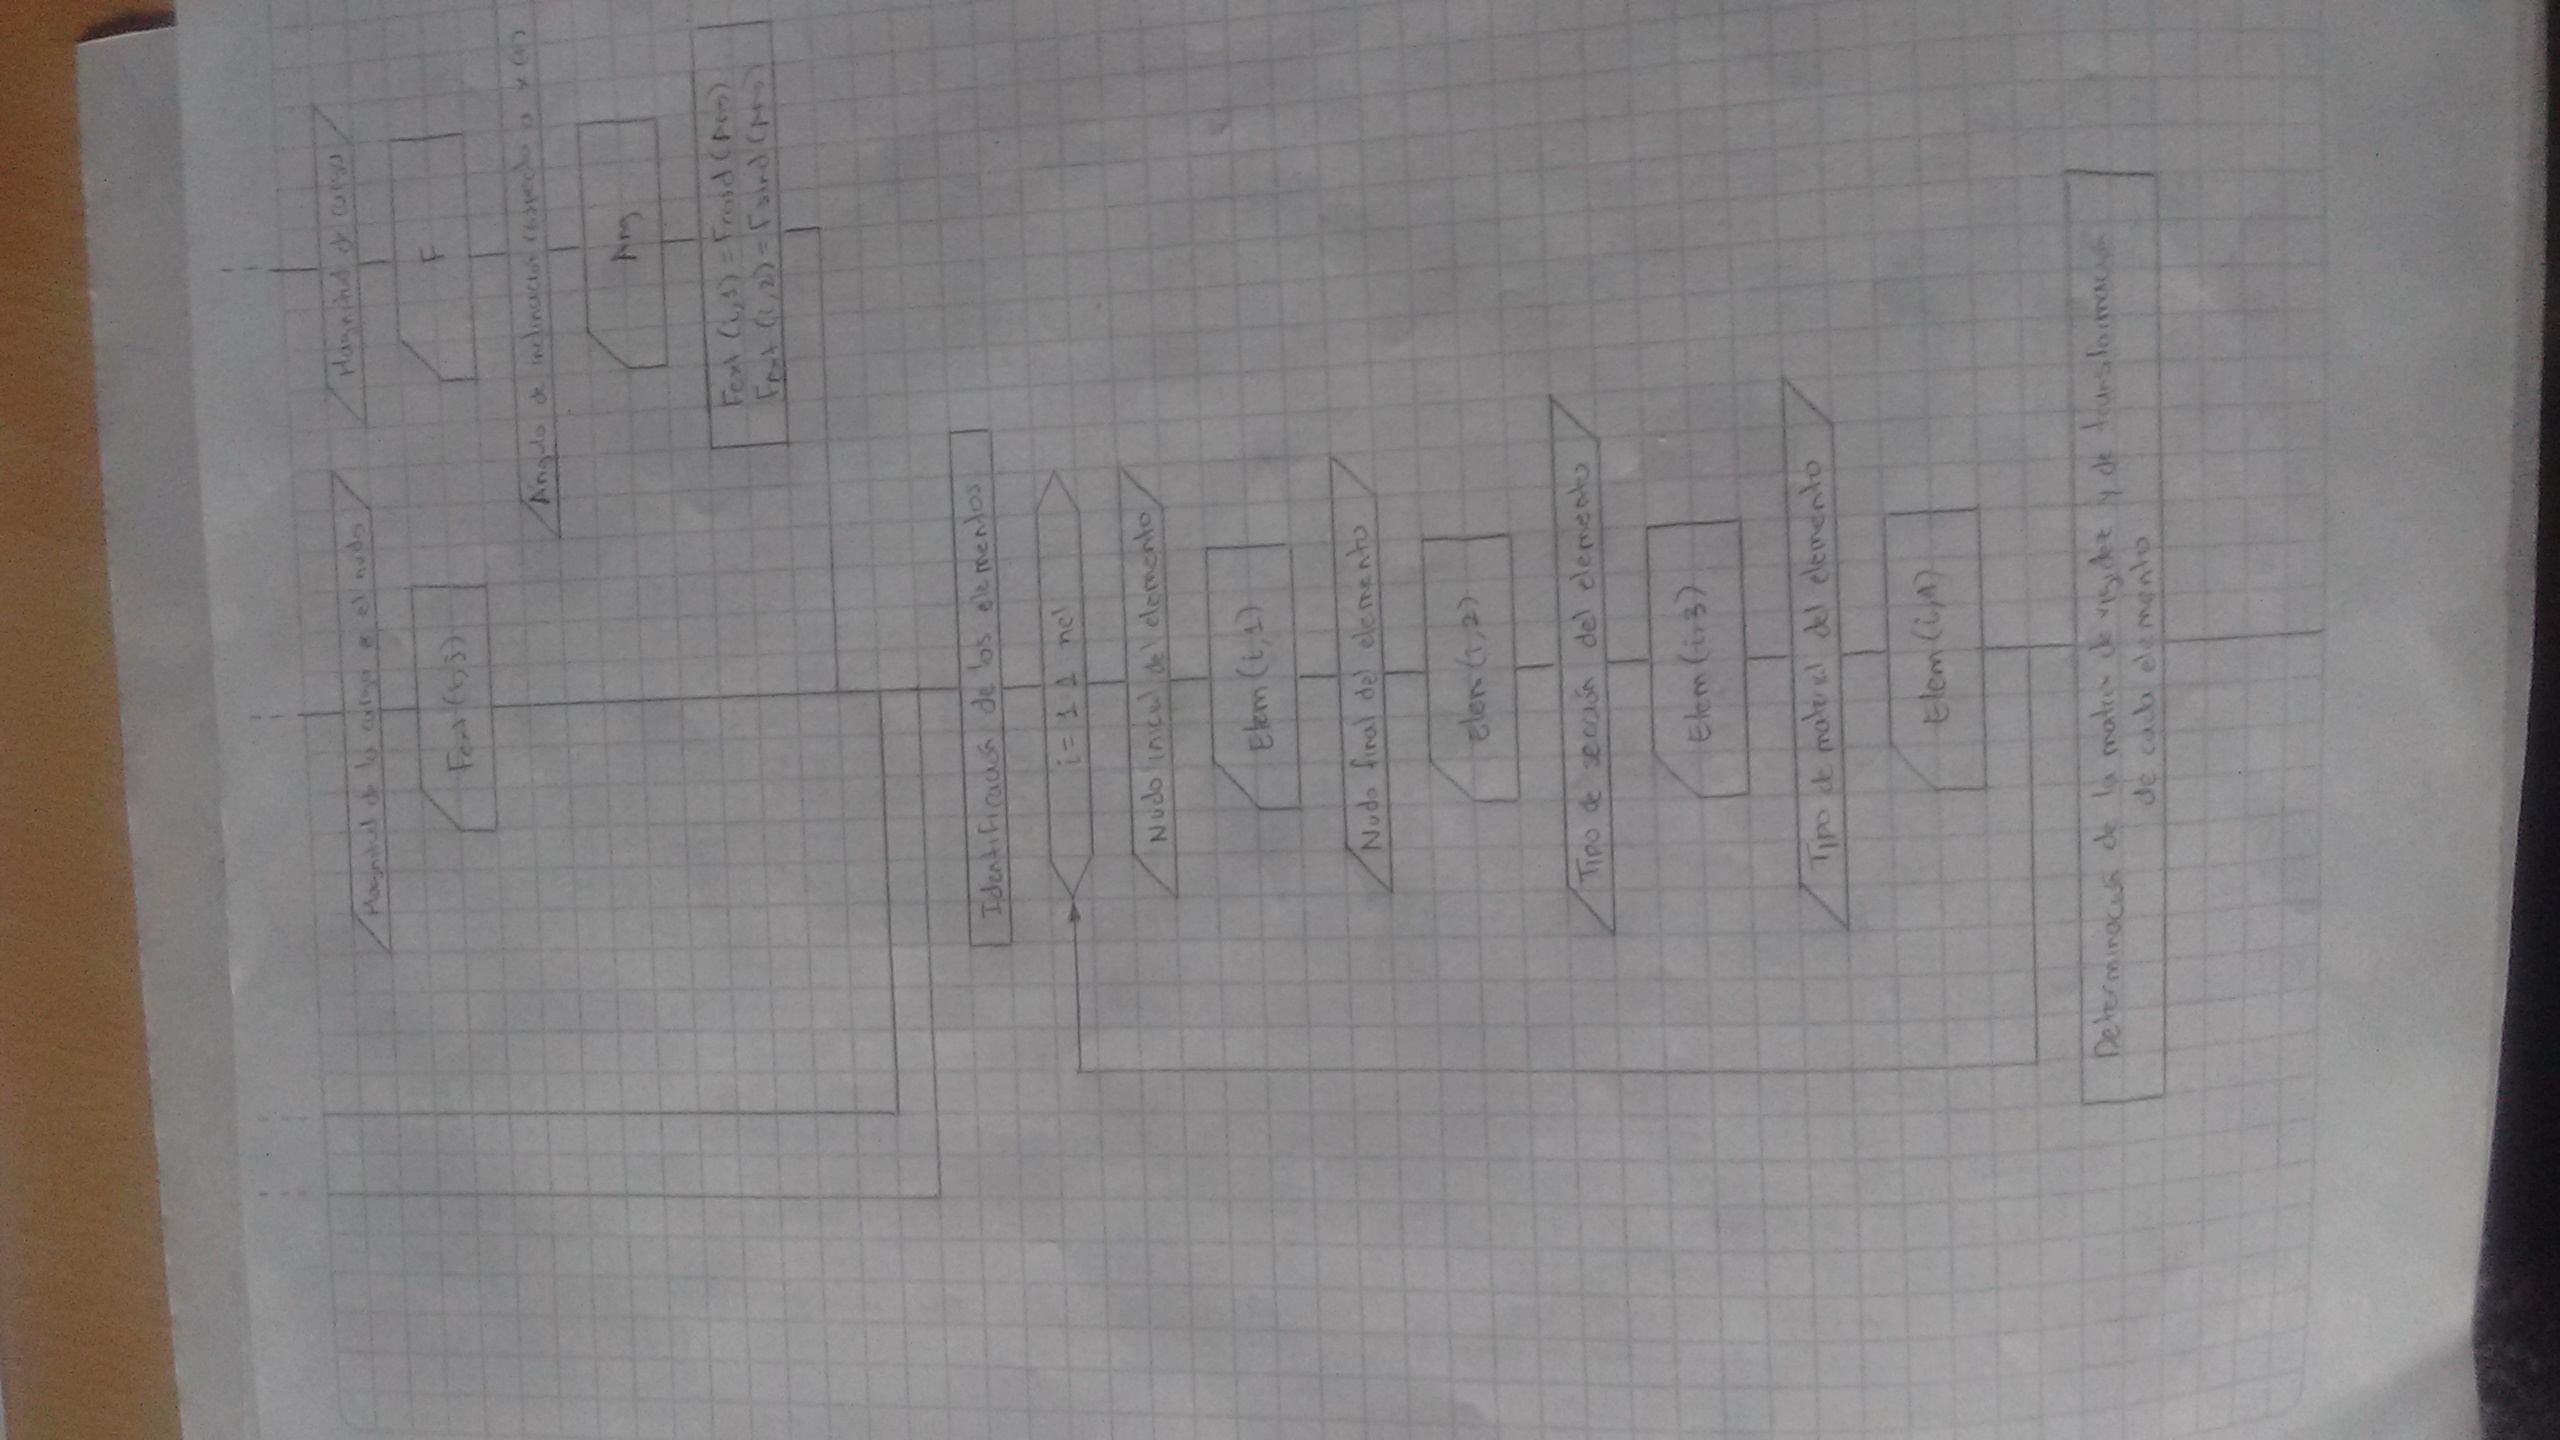 Magnitud de la carga en el nudo
Fext (i,j)
Magnitud de carga
F
Angulo de inclinación respecto a x (°)
Ang
Fext (i,1) = Fcosd (Ang)
Fext (i,2) = Fsind (Ang)
Identificación de los elementos
i = 1 1 nel
Nudo inicial del elemento
Elem (i,1)
Nudo final del elemento
Elem (i,2)
Tipo de sección del elemento
Elem (i,3)
Tipo de material del elemento
Elem (i,4)
Determinación de la matriz de rigidez y de transformación
de cada elemento